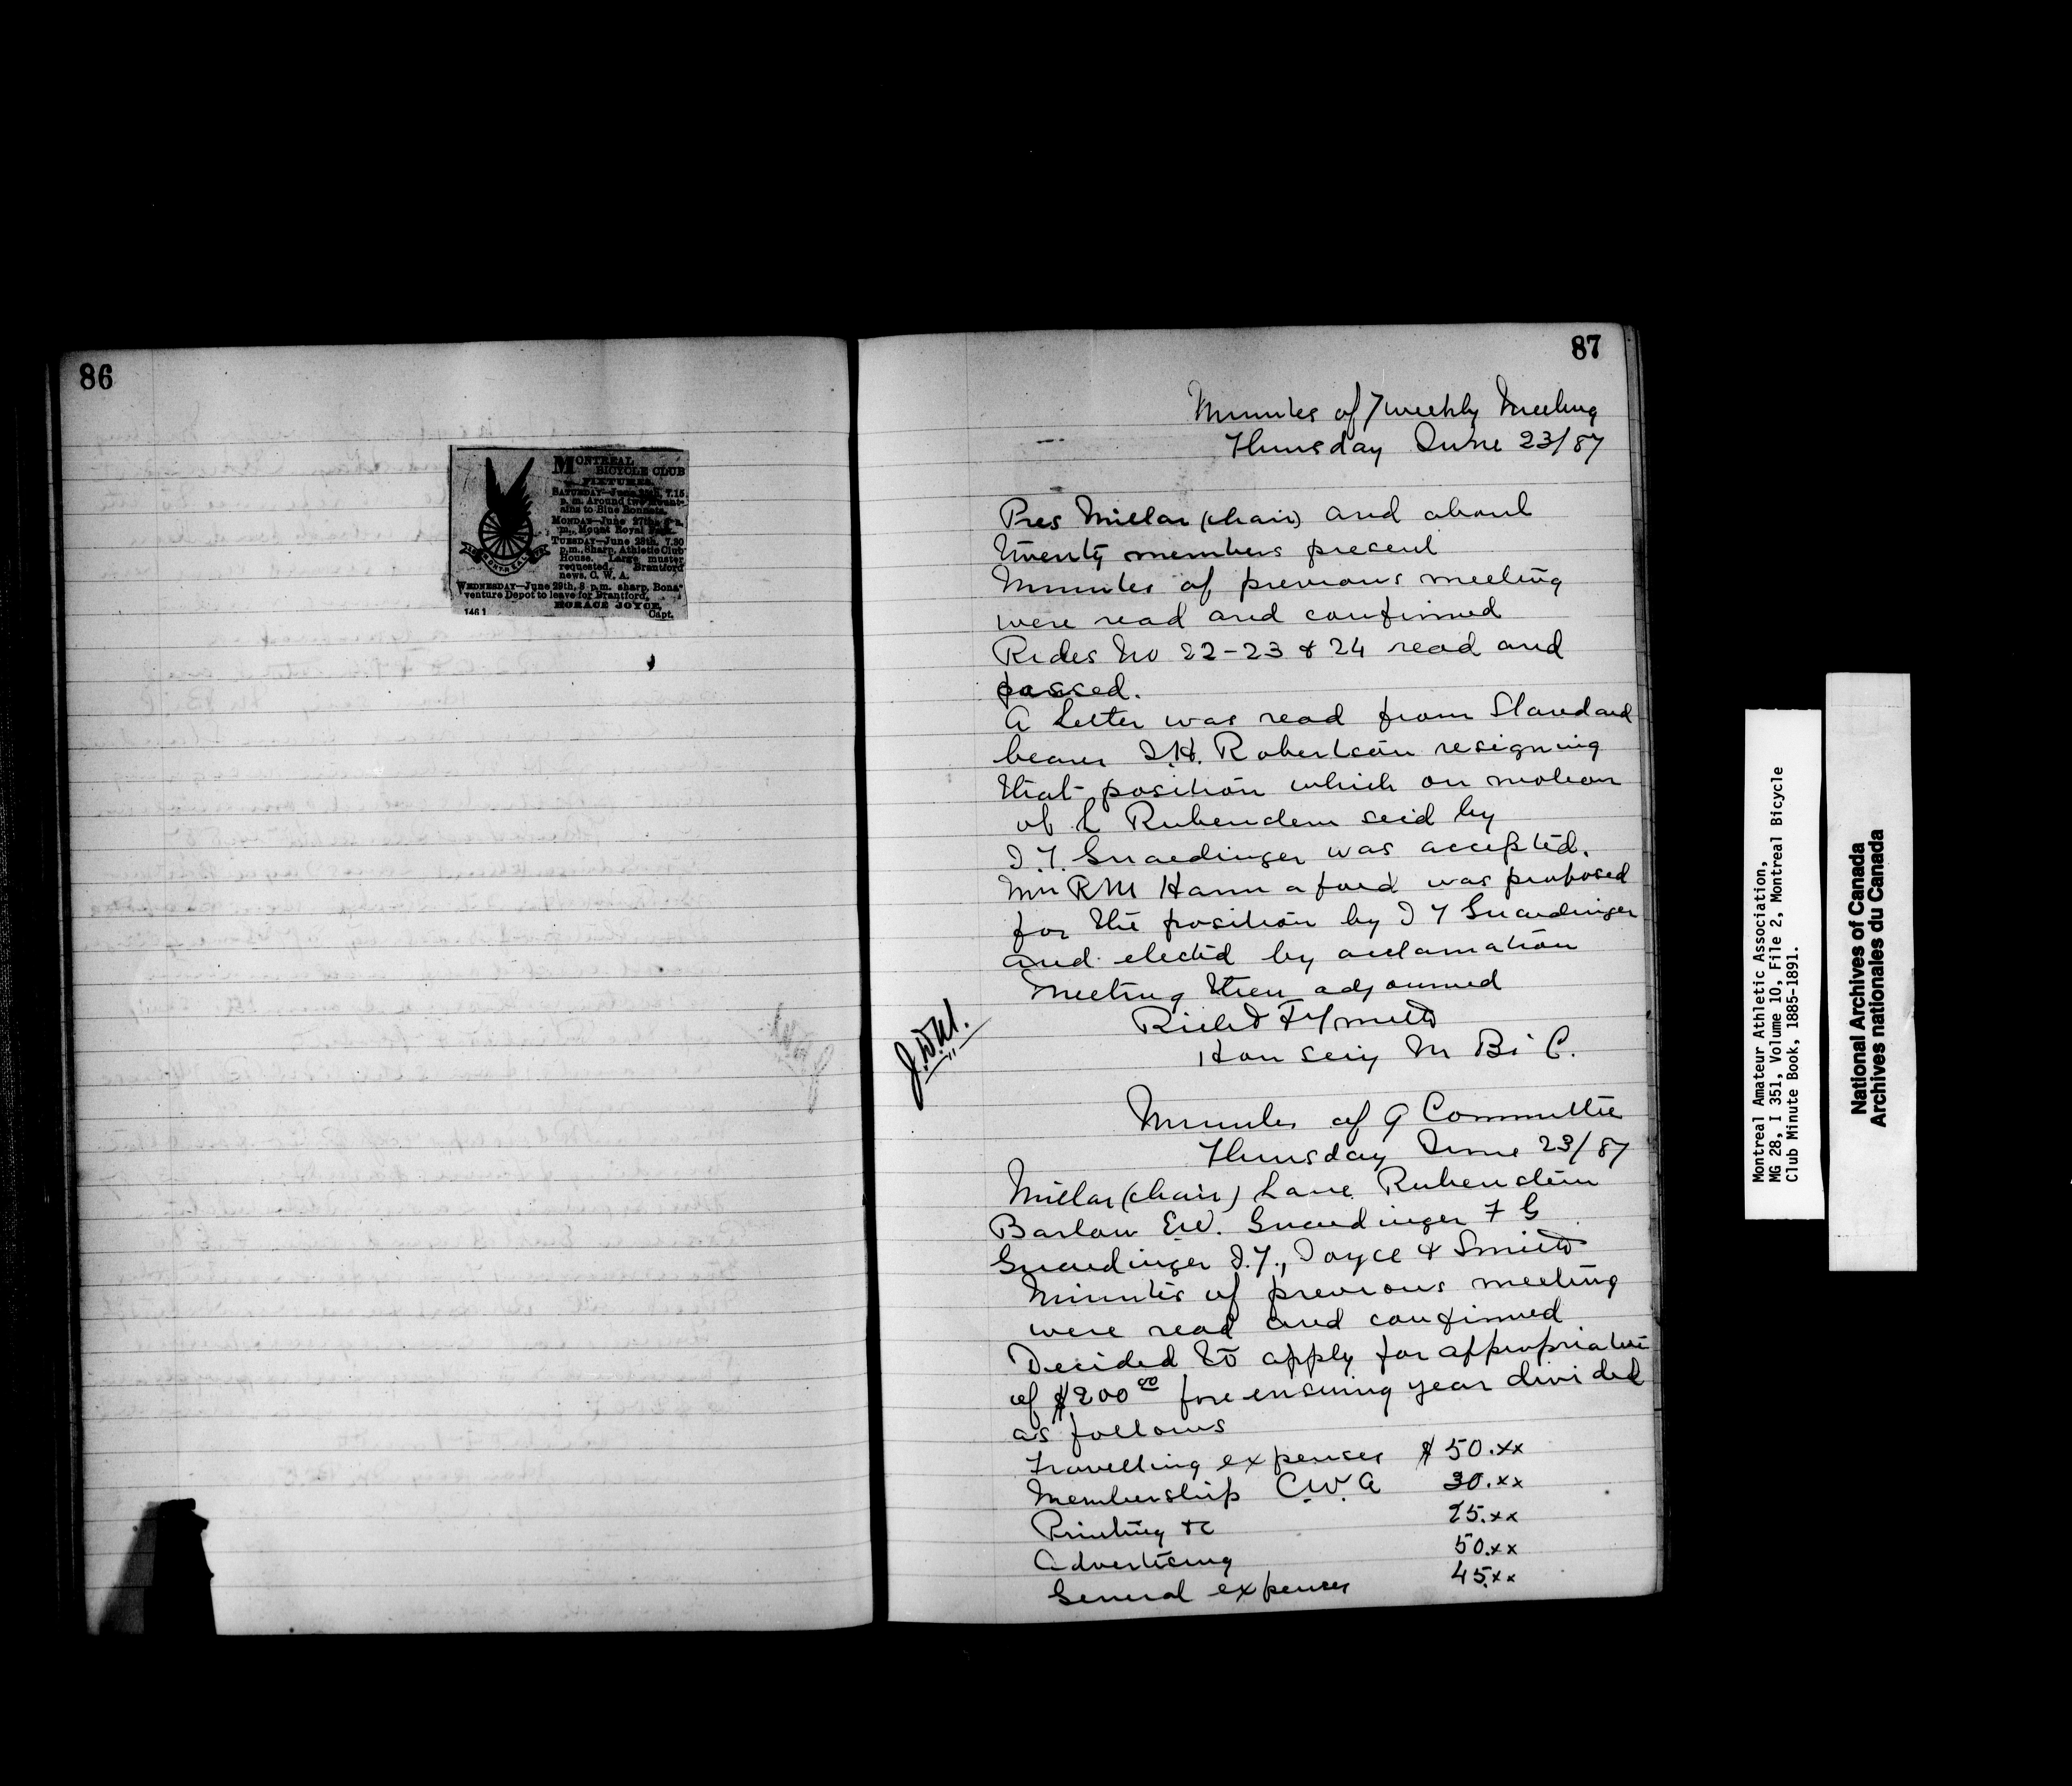 86
MONTREAL
BICYCLE CLUB
FIXTURES.
SATURDAY—June 25th, 7.15
p. m. Around two Mount-
ains to Blue Bonnets.
MONDAY—June 27th,
m., Mount Royal Park.
TUESDAY—June 28th, 7.30
p.m., Sharp, Athletic Club
House. Large muster
requested. Brantford
news. C. W. A.
WEDNESDAY—June 29th, 8 p.m. sharp, Bona-
venture Depot to leave for Brantford.
HORACE JOYCE,
146 1 Capt.
MONTREAL
87
Minutes of 7 weekly Meeting
Thursday June 23/87
Pres Millar (chair) and about
twenty members present
Minutes of previous meeting
were read and confirmed
Rides No 22-23 & 24 read and
passed.
A letter was read from Standard
bearer J.H. Robertson resigning
that position which on motion
of L Rubenstein secd by
J.T. Gnaedinger was accepted.
Mr R M Hannaford was proposed
for the position by J T Gnaedinger
and elected by acclamation
Meeting then adjourned
Richd F Smith
Hon Secy M Bi C.
J.D.M.
Minutes of 9 Committee
Thursday June 23/87
Millar (chair) Lane Rubenstein
Barlow E.W. Gnaedinger F G
Gnaedinger J.T., Joyce & Smith
Minutes of previous meeting
were read and confirmed
Decided to apply for appropriation
of $200 00 for ensuing year divided
as follows
Travelling expenses $ 50.xx
Membership C.W.A 30.xx
Printing &c 25.xx
Advertising 50.xx
General expenses 45.xx
Montreal Amateur Athletic Association,
MG 28, I 351, Volume 10, File 2, Montreal Bicycle
Club Minute Book, 1885-1891.
National Archives of Canada
Archives nationales du Canada